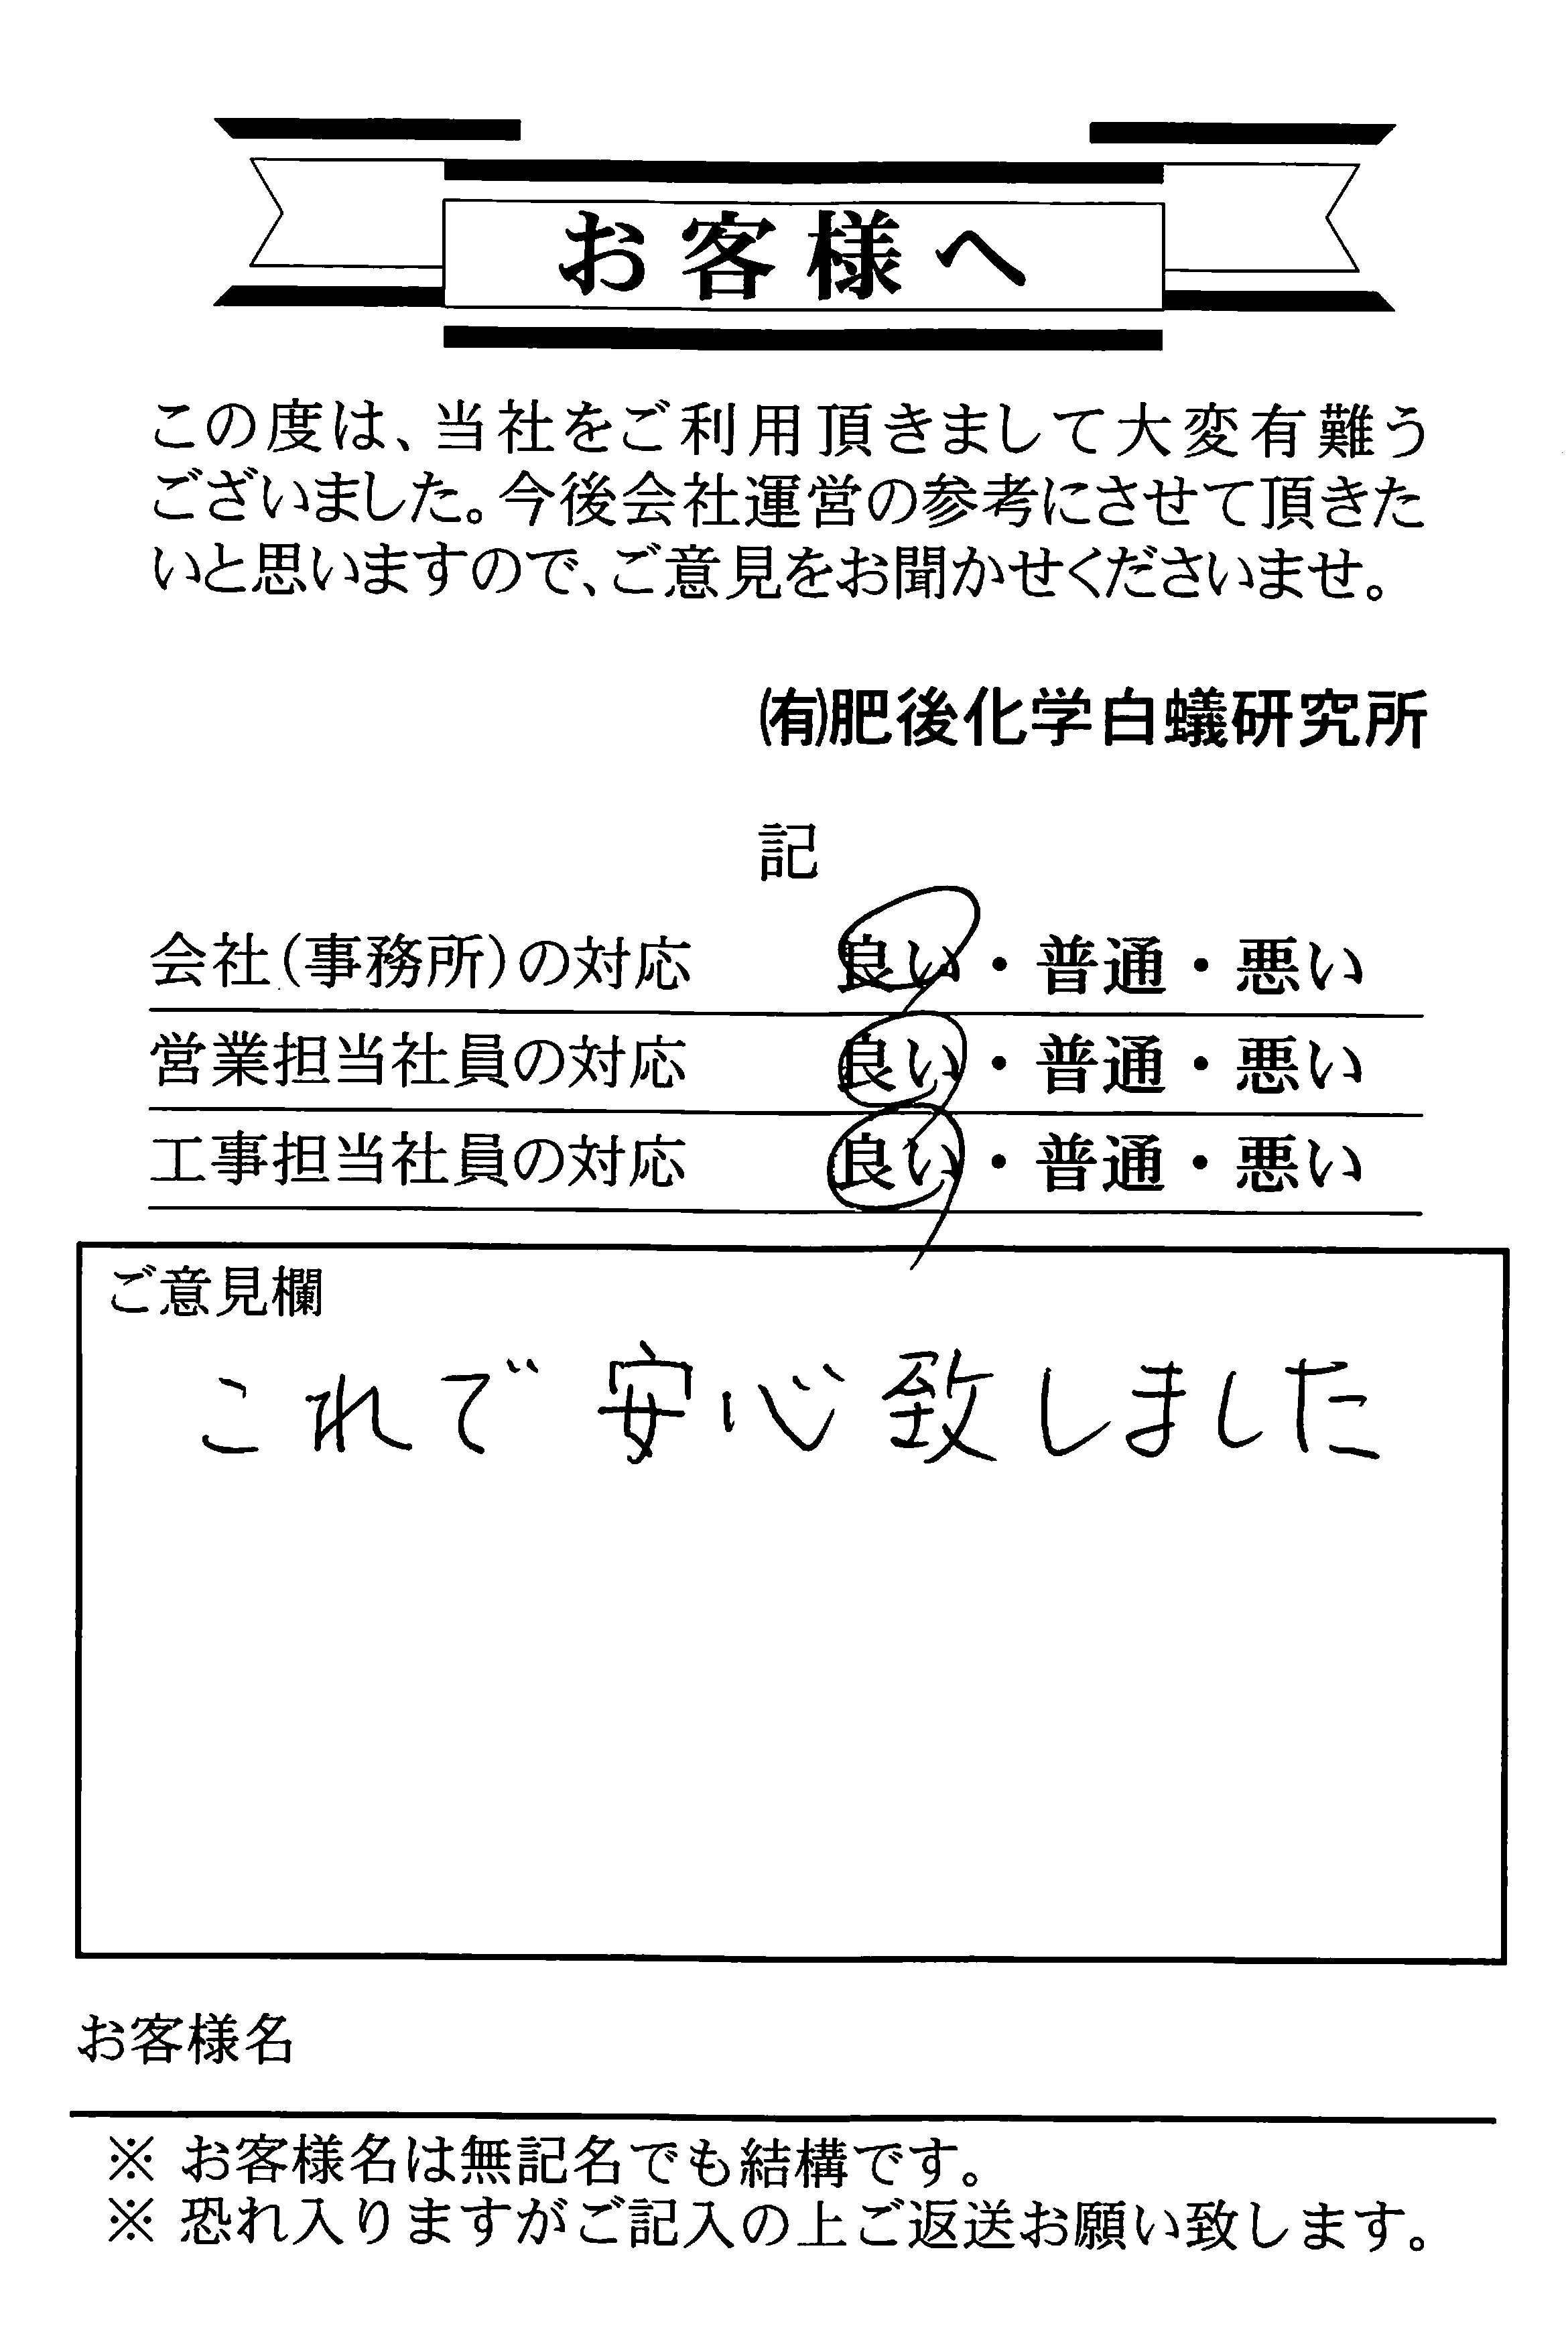 お客様へ
この度は、当社をご利用頂きまして大変有難う
ございました。今後会社運営の参考にさせて頂きた
いと思いますので、ご意見をお聞かせくださいませ。
㈲肥後化学白蟻研究所
記
会社(事務所)の対応 良い・普通・悪い
営業担当社員の対応 良い・普通・悪い
工事担当社員の対応 良い・普通・悪い
ご意見欄
これで安心致しました
お客様名
※ お客様名は無記名でも結構です。
※ 恐れ入りますがご記入の上ご返送お願い致します。